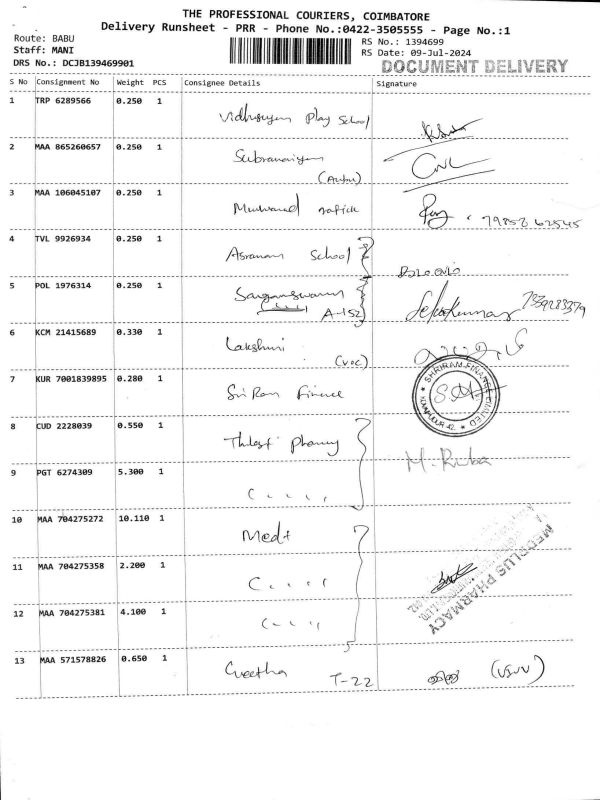 THE PROFESSIONAL COURIERS, COIMBATORE
Delivery Runsheet - PRR - Phone No.:0422-3505555 - Page No.:1
Route: BABU
RS No.: 1394699
Staff: MANI
RS Date: 09-Jul-2024
DRS No.: DCJB139469901
DOCUMENT DELIVERY
S No Consignment No Weight PCS Consignee Details Signature
1 TRP 6289566 0.250 1 Play School
2 MAA 865260657 0.250 1
3 MAA 106045107 0.250 1 79852 62545
4 TVL 9926934 0.250 1 School
5 POL 1976314 0.250 1 Selvakumar 7339283379
A-152
6 KCM 21415689 0.330 1 Lakshmi
(VOC)
7 KUR 7001839895 0.280 1 Sri Ram Finance SHRIRAM FINANCE LIMITED
8 CUD 2228039 0.550 1 M. Ruba
9 PGT 6274309 5.300 1
10 MAA 704275272 10.110 1 Med+
11 MAA 704275358 2.200 1 MEDPLUS PHARMACY
12 MAA 704275381 4.100 1
13 MAA 571578826 0.650 1 Geetha T-22